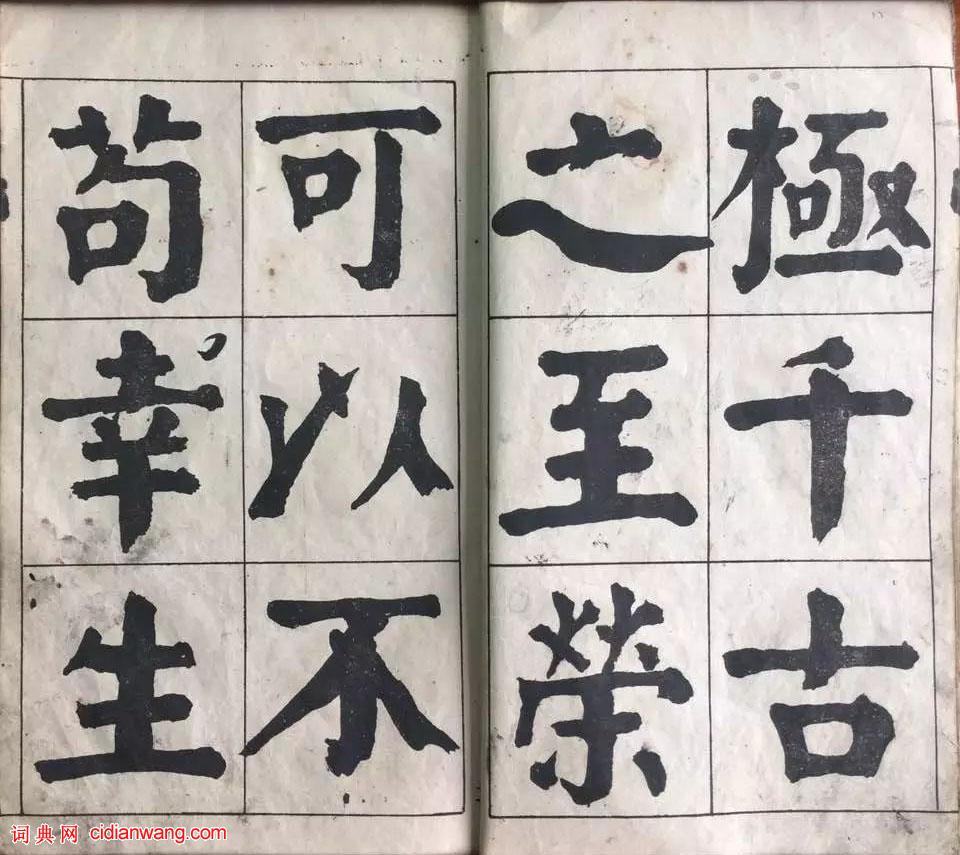 極千古
之至榮
可以不
苟幸生
词典网 cidianwang.com